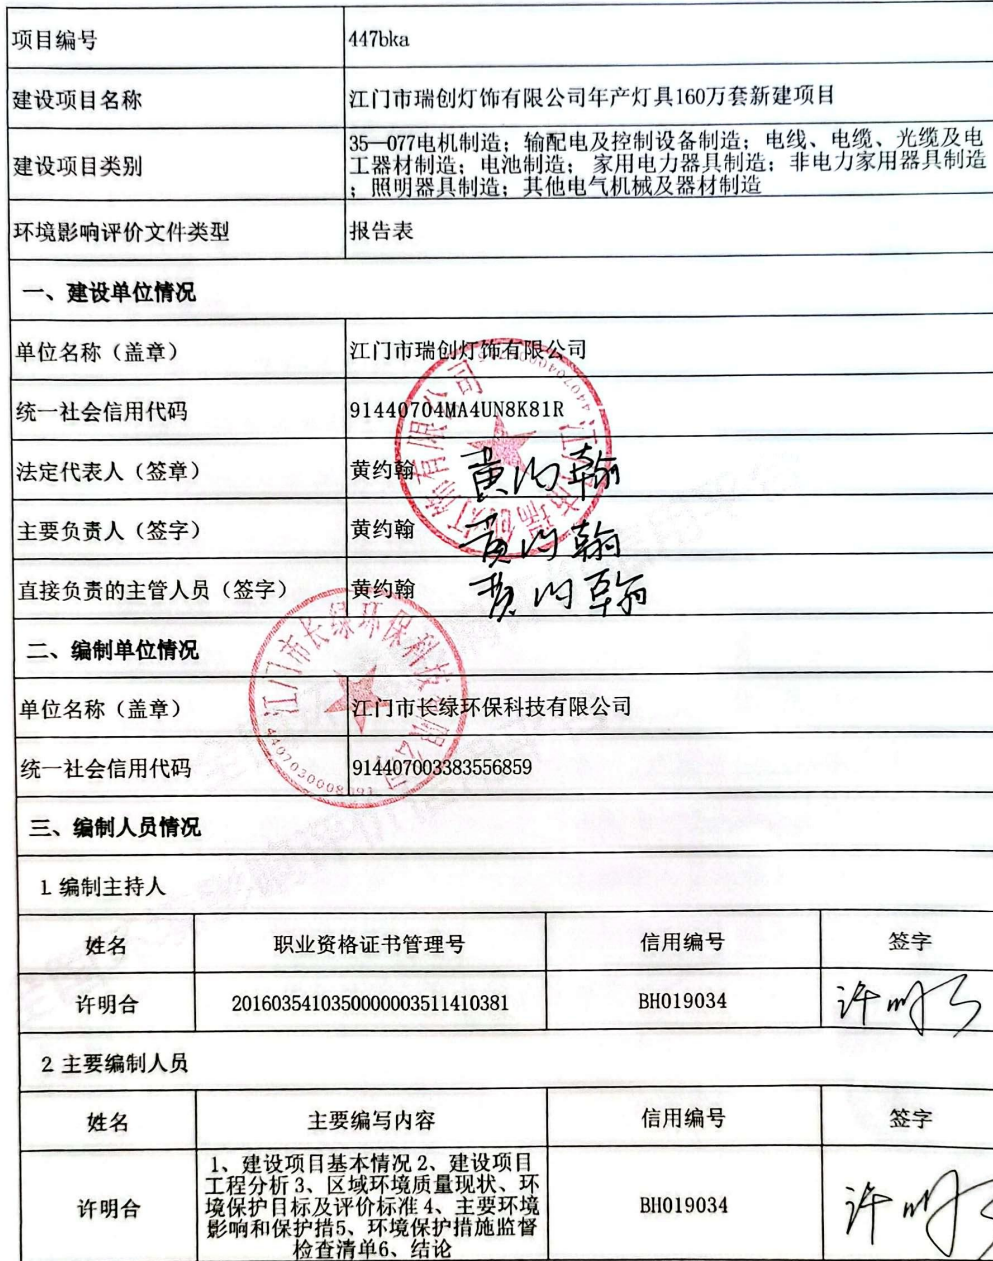 项目编号 447bka
建设项目名称 江门市瑞创灯饰有限公司年产灯具160万套新建项目
建设项目类别 35—077电机制造；输配电及控制设备制造；电线、电缆、光缆及电
工器材制造；电池制造；家用电力器具制造；非电力家用器具制造
；照明器具制造；其他电气机械及器材制造
环境影响评价文件类型 报告表
一、建设单位情况
单位名称（盖章） 江门市瑞创灯饰有限公司
统一社会信用代码 91440704MA4UN8K81R
法定代表人（签章） 黄约翰 黄约翰
主要负责人（签字） 黄约翰 黄约翰
直接负责的主管人员（签字） 黄约翰 黄约翰
江门市瑞创灯饰有限公司
二、编制单位情况
单位名称（盖章） 江门市长绿环保科技有限公司
统一社会信用代码 914407003383556859
江门市长绿环保科技有限公司
三、编制人员情况
1.编制主持人
姓名 职业资格证书管理号 信用编号 签字
许明合 2016035410350000003511410381 BH019034 许明合
2.主要编制人员
姓名 主要编写内容 信用编号 签字
许明合 1、建设项目基本情况 2、建设项目
工程分析 3、区域环境质量现状、环
境保护目标及评价标准 4、主要环境
影响和保护措5、环境保护措施监督
检查清单6、结论
BH019034 许明